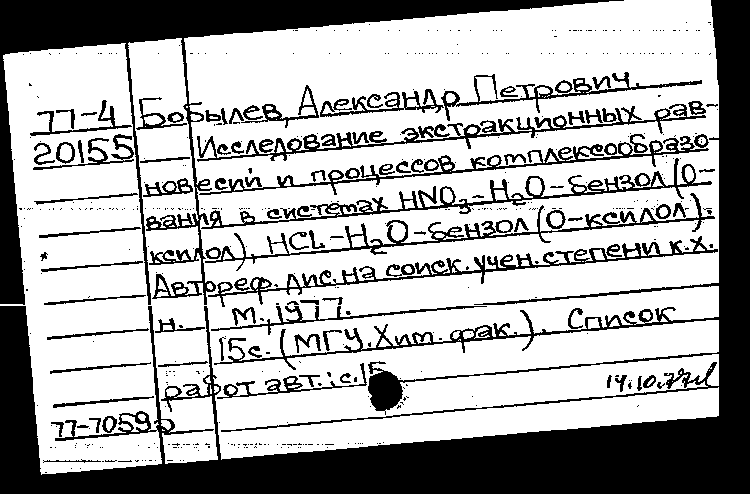 77-4 Бобылев, Александр Петрович.
20155 Исследование экстракционных рав-
новесий и процессов комплексообразо-
вания в системах HNO3-H2O-бензол (О-
ксилол), HCl-H2O-бензол (О-ксилол).
Автореф. дис. на соиск. учен. степени к.х.
н. М., 1977.
15с. (МГУ. Хим. фак.). Список
работ авт.: с.15
14.10.77
77-70595